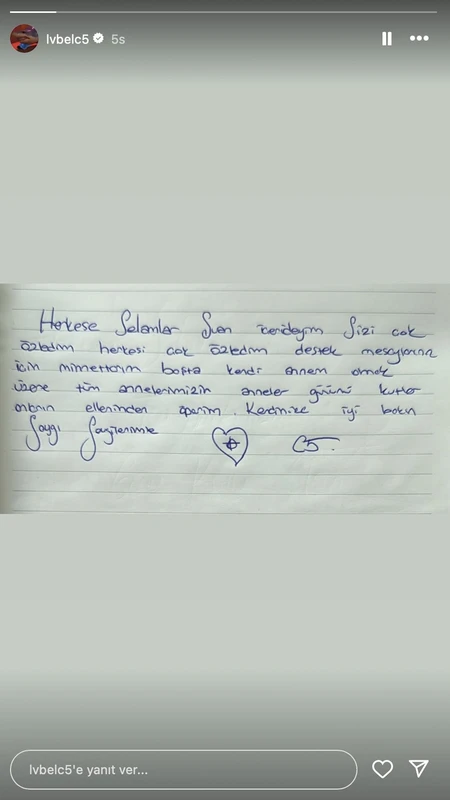 lvbelc5 5s
Herkese Selamlar Şuan içerideyim Sizi çok
özledim herkesi çok özledim destek mesajlarınız
için minnettarım başta kendi annem olmak
üzere tüm annelerimizin anneler gününü kutlar
onların ellerinden öperim. Kendinize iyi bakın
Saygı Sevgilerimle
C5.
lvbelc5'e yanıt ver...